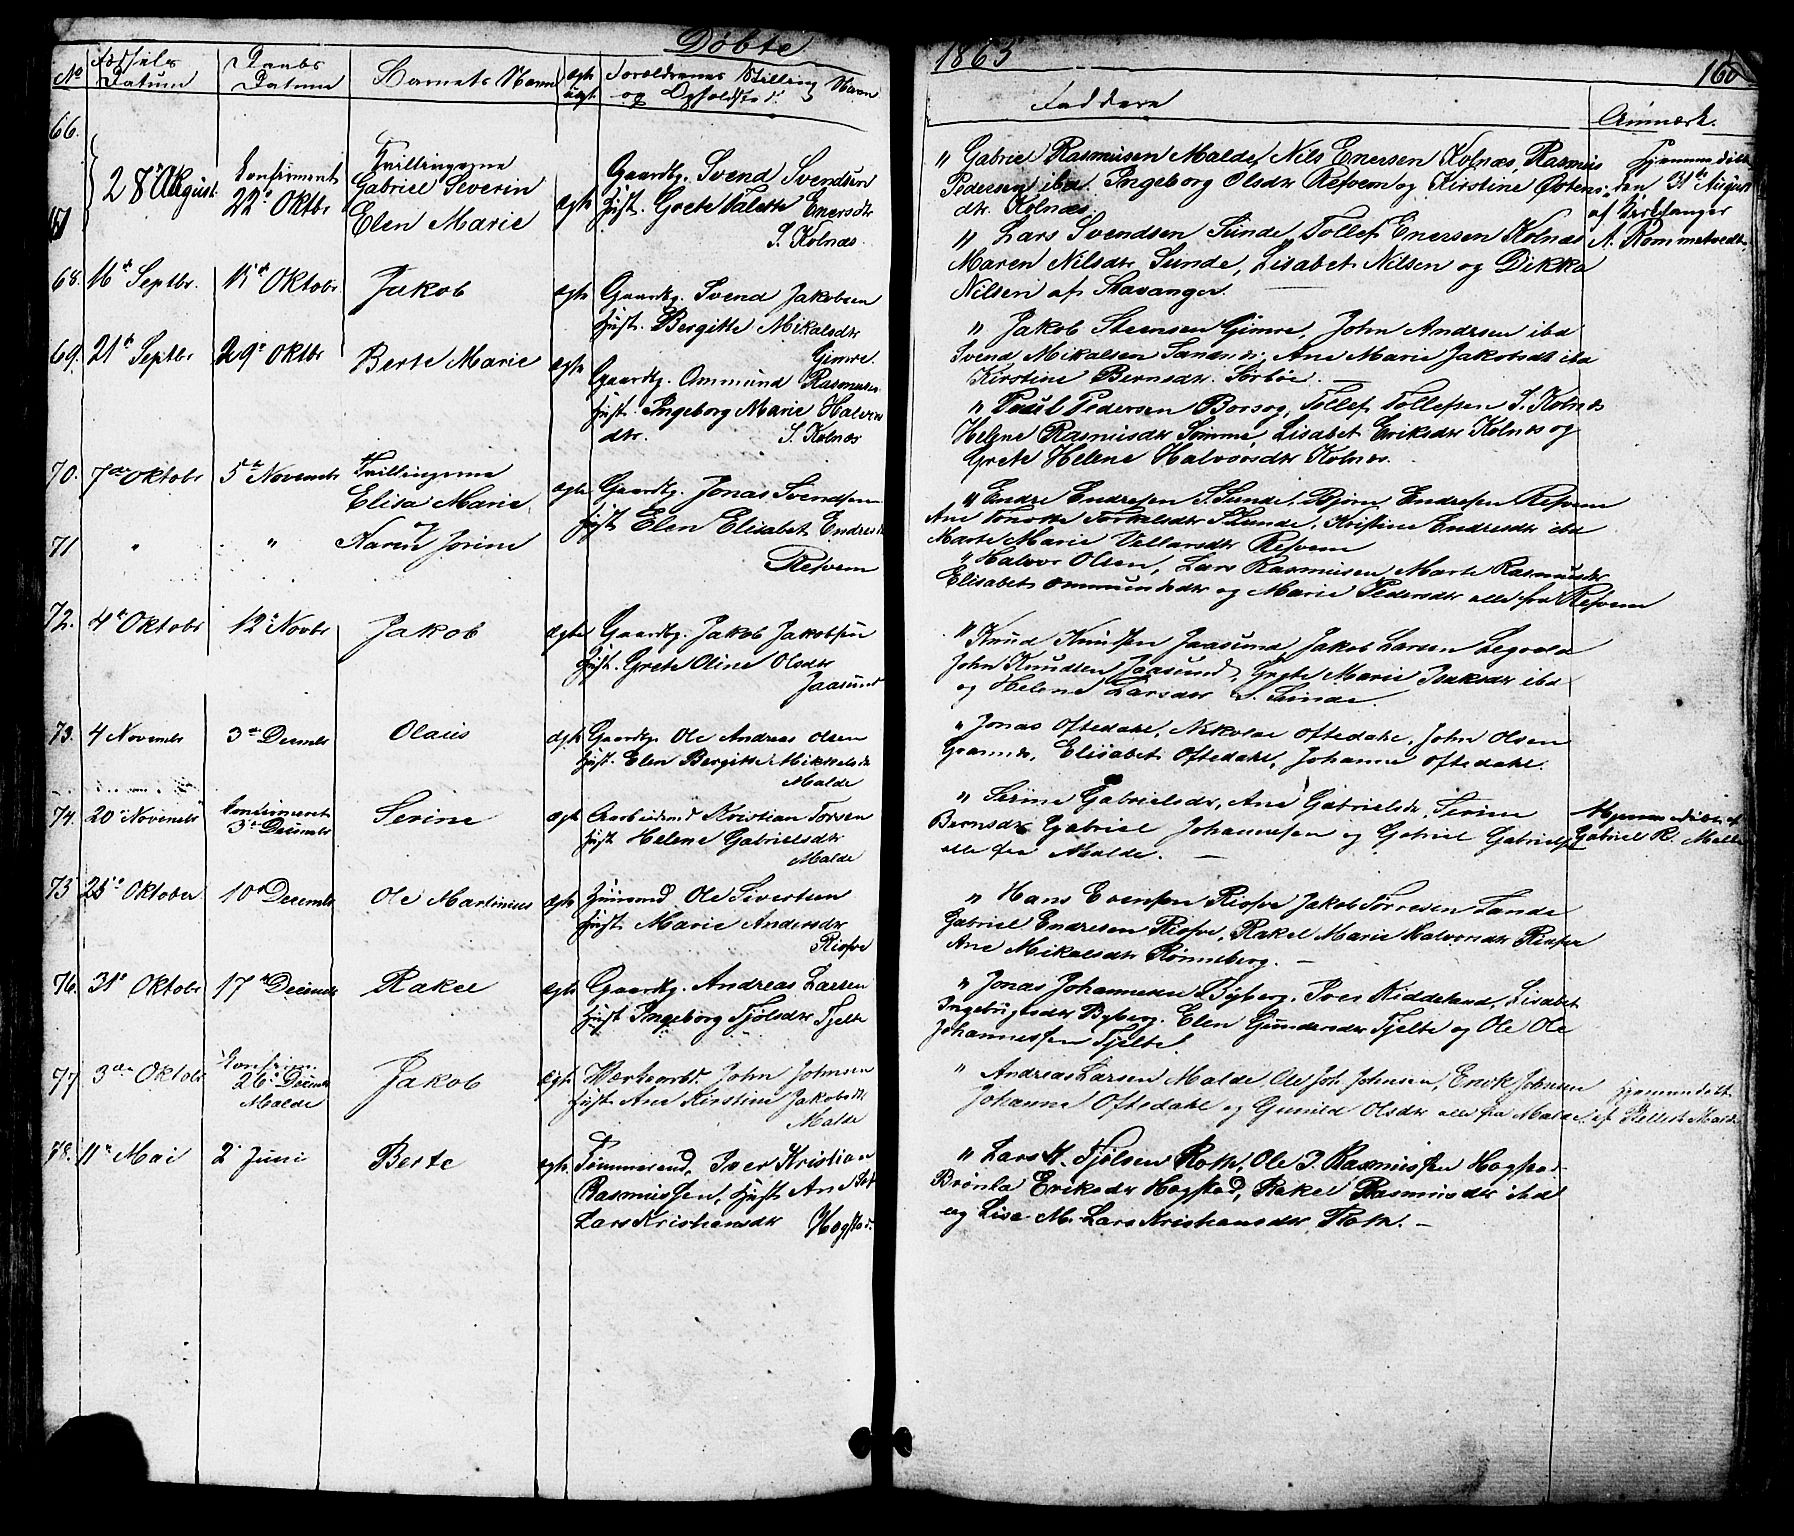 Döbte
1863
160
No
Fødsels Datum
Daabs Datum
Barnets Navn
ægte uægt.
Forældrenes Stilling Navn
og Opholdsted.
Faddere
Anmærk.
66.
28de August
Konfirmert
22de Oktbr
Tvillingerne
Gabriel Severin
67
Elen Marie
ægte
Gaardbr. Svend Svendsen
Hust. Grete Valette Enersdtr
S. Kolnæs
" Gabriel Rasmusen Malde, Nils Enersen Kolnæs, Rasmus
Pedersen ibd. Ingeborg Olsdtr Refvem og Kirstine Østens
dtr. Kolnæs
" Lars Svendsen Sunde, Tollef Enersen Kolnæs
Maren Nilsdtr Sunde, Lisabet Nilsen og Dikka
Nilsen af Stavanger.
Hjemmedöbt
den 31te August
af Kirkesanger
A. Rommetvedt
68. 16de Septbr. 15de Oktobr. Jakob ægte
Gaardbr. Svend Jakobsen
Hust. Bergitte Mikalsdtr
Gimre.
" Jakob Steensen Gimre, John Andersen ibd
Svend Mikalsen Sandnæs, Ane Marie Jakobsdtr ibd
Kirstine Bernsdtr. Sörböe. —
69. 21de Septbr 29de Oktbr Berte Marie ægte
Gaardbr. Ommund Rasmusen
Hust. Ingeborg Marie Halvors
dtr. S. Kolnæs
" Poul Pedersen Borsog, Tollef Tollefsen S. Kolnæs
Helene Rasmusdtr Sömme, Lisabet Eriksdtr Kolnæs og
Grete Helene Halvorsdtr Kolnæs.
70. 7de Oktobr 5te Novembr
Tvillingerne
Elisa Marie
og
71 " " Karen Jorine
ægte
Gaardbr. Jonas Svendsen
Hust Elen Elisabet Endresdtr
Refvem
" Endre Endresen S. Sunde, Björn Endresen Refvem
Ane Torkalsdtr S. Sunde, Kristine Endresdtr ibd
Marte Marie Vellarsdtr Refvem
" Halvor Olsen, Lars Rasmusen, Marte Rasmusdtr
Elisabet Ommundsdtr og Marie Pedersdtr alle fra Refvem
72. 4de Oktobr 12te Novbr Jakob ægte
Gaardbr. Jakob Jakobsen
Hust. Grete Oline Olsdtr
Jaasund
" Knud Knudsen Jaasund, Jakob Larsen
John Knudsen Jaasund, Grete Marie Isaksdtr ibd
og Helene Larsdtr S. Sunde.
73. 4 Novembr 3de Decembr Olaus ægte
Gaardbr. Ole Andreas Olsen
Hust. Elen Bergitte Mikkelsdtr
Malde
" Jonas Oftedahl, Nikolai Oftedahl, John Olsen
Grannes, Elisabet Oftedahl, Johanne Oftedahl.
74. 20de Novembr
Konfirmert
3de Decembr
Serine ægte
Arbeidsmd Kristian Torsen
Hust Helene Gabrielsdtr
Malde
" Serine Gabrielsdtr, Ane Gabrielsdtr, Serine
Bernsdtr Gabriel Johannesen og Gabriel Gabrielsen
alle fra Malde. —
Hjemmedöbt af
Gabriel R. Malde
75 25de Oktober 10de Decembr Ole Martinius ægte
Huusmd Ole Sivertsen
Hust. Marie Andersdtr
Risfve
" Hans Evensen Risfve Jakob Törresen Sande
Gabriel Endresen Risfve, Rakel Marie Halvorsdtr Risfve
Ane Mikalsdtr Rönneberg. —
76. 31te Oktobr 17de Decembr Rakel ægte
Gaardbr. Andreas Larsen
Hust Ingeborg Tjölsdtr Tjelte
" Jonas Johannesen Byberg, Iver Kiddelund, Lisabet
Ingebrigtsdtr Byberg. Elen Gundersdtr Tjelte og Ole Ole
Johannessen Tjelte.
77. 3die Oktobr
Konfirm.
26de Decembr
Malde
Jakob ægte
John Johnsen
Hust Ane Kirstine Jakobsdtr
Malde
" Andreas Larsen Malde, Ole Joh. Johnsen, Enok Johnsen
Johanne Oftedahl og Gunild Olsdtr alle fra Malde.
Hjemmedöbt
af Malde
78. 11te Mai 2de Juni Berte ægte
Tömmermd, Iver Kristian
Rasmussen, Hust Ane
Lars Kristiansdtr Hogstad.
" Lars K. Tjölsen Roth, Ole P. Rasmussen Hogstad
Brönla Eriksdtr Hogstad, Rakel Rasmusdtr ibd
og Lise M. Lars Kristiansdtr Roth. —